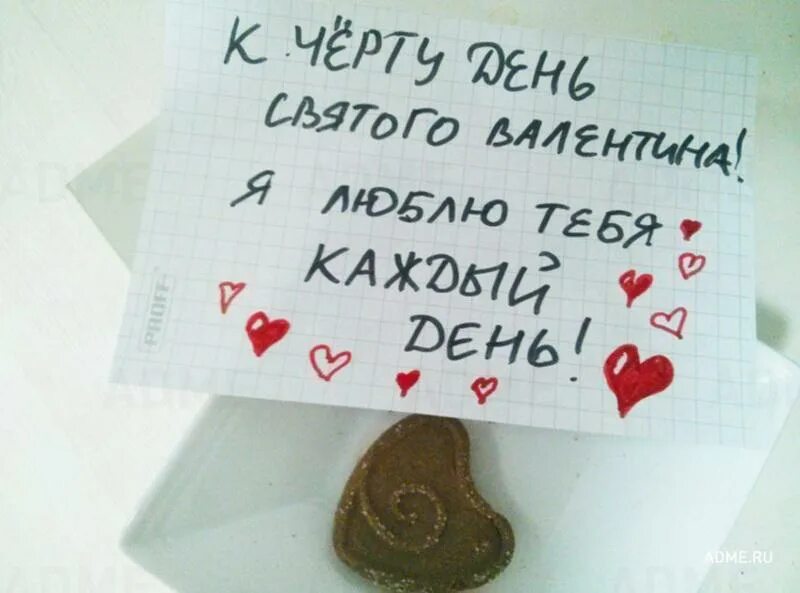 К ЧЁРТУ ДЕНЬ
СВЯТОГО ВАЛЕНТИНА!
Я ЛЮБЛЮ ТЕБЯ
КАЖДЫЙ
ДЕНЬ!
PROFF
ADME.RU